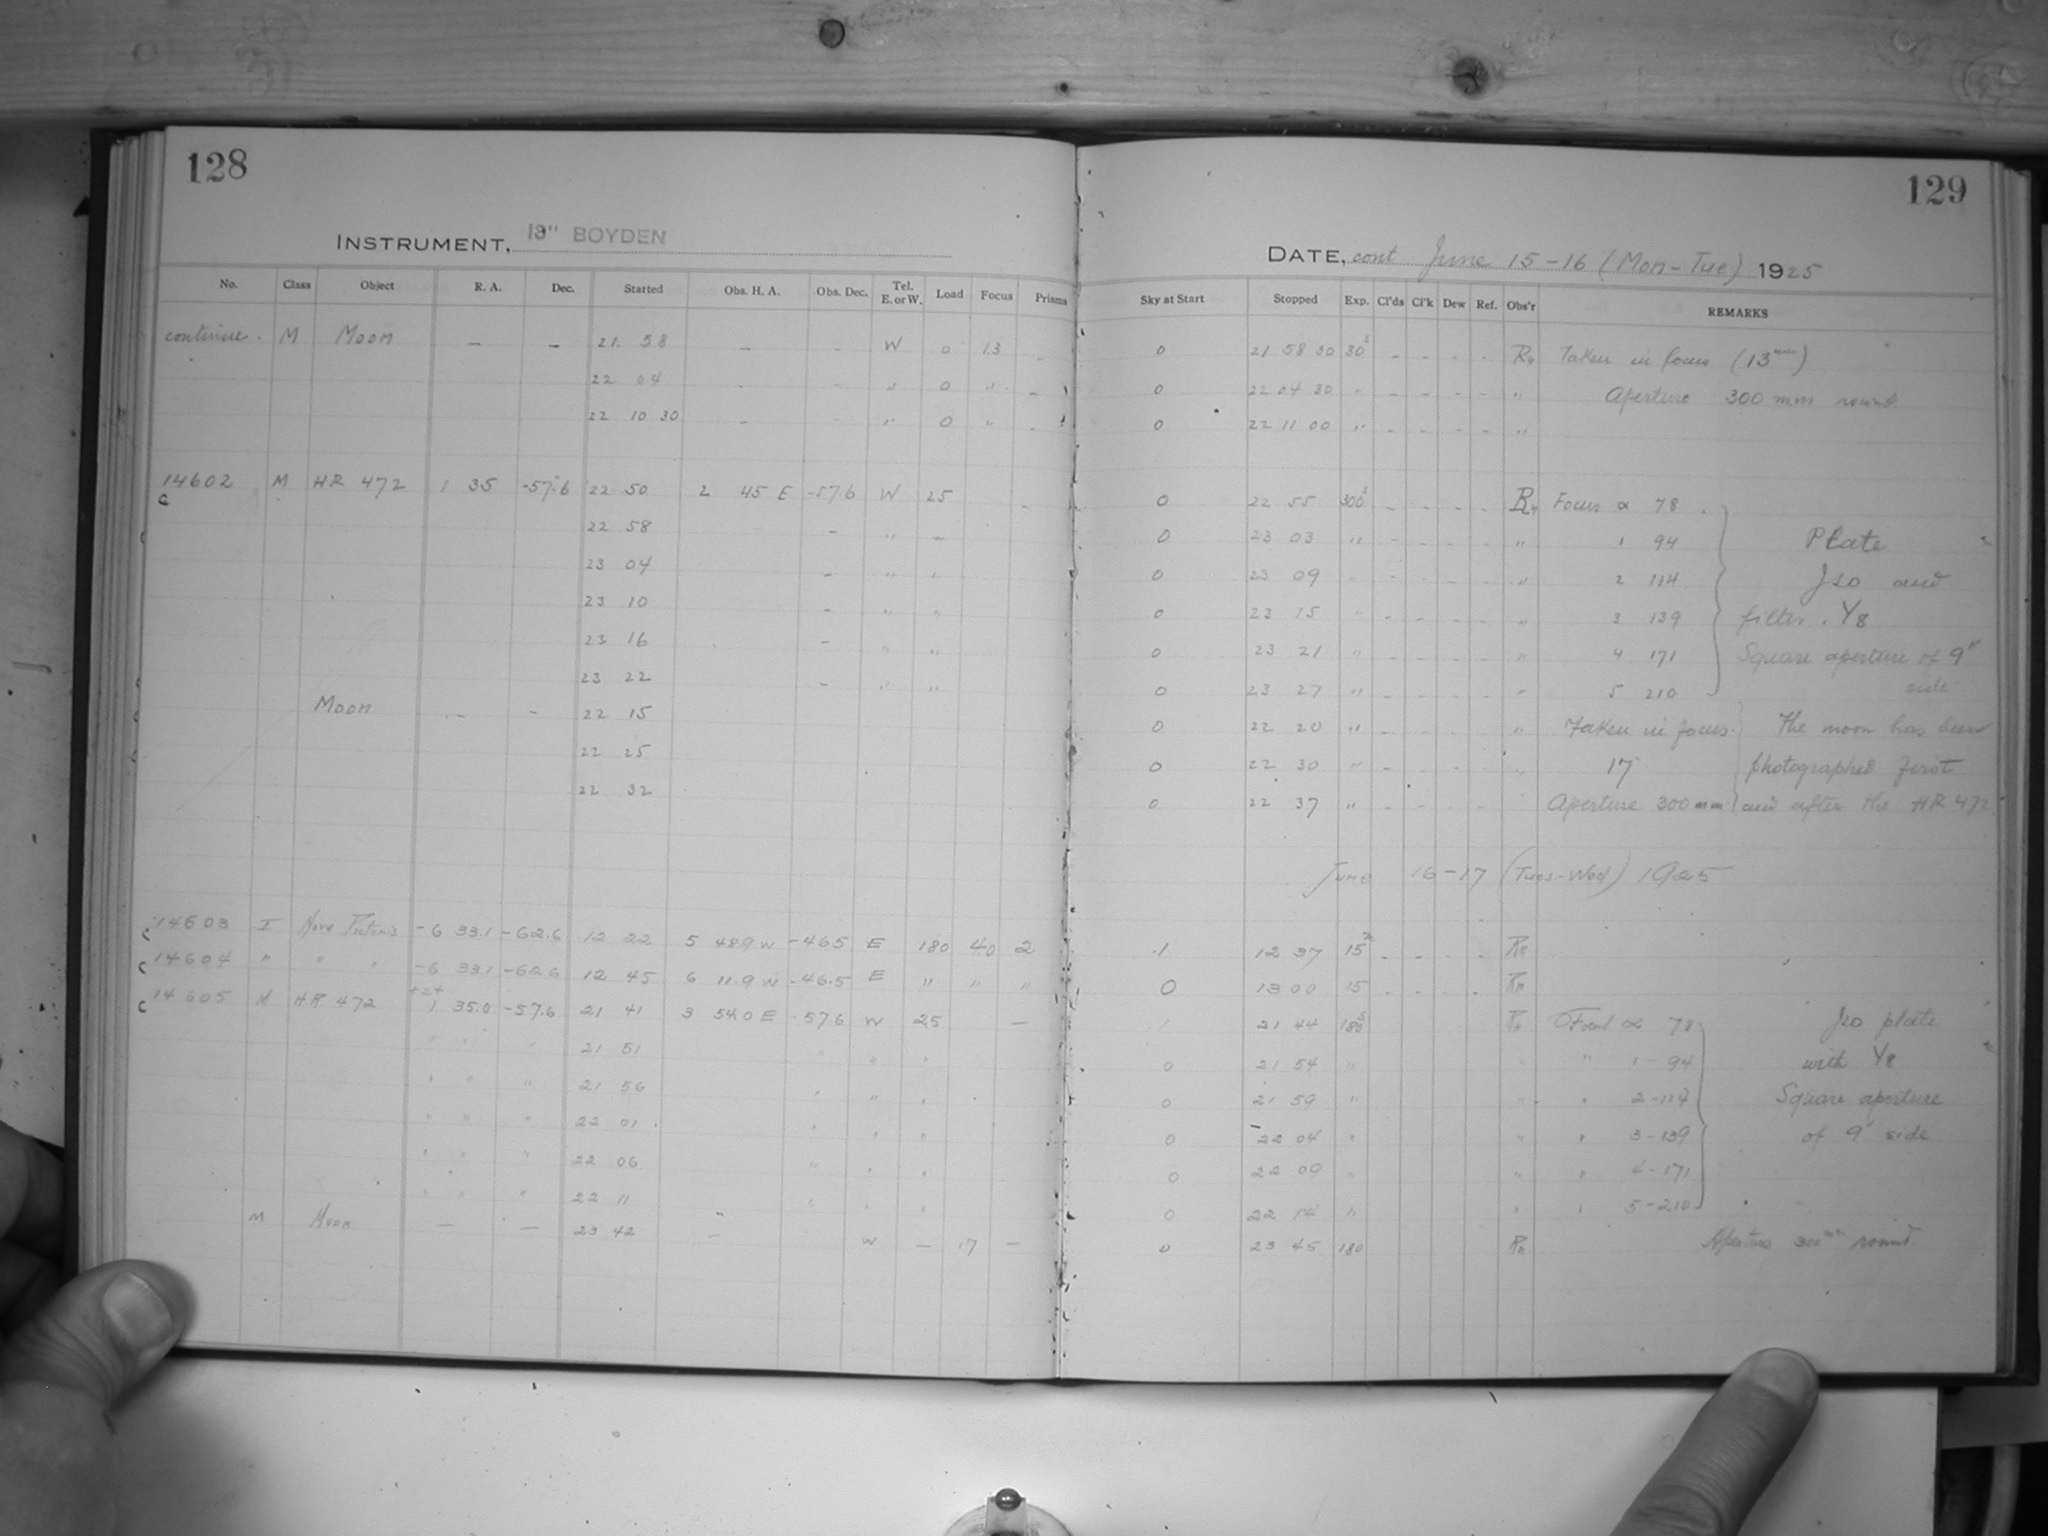 128
INSTRUMENT, 13" BOYDEN
No. Class Object R. A. Dec. Started Obs. H. A. Obs. Dec. Tel. E. or W. Load Focus Prisms
continue. M Moon — — 21 58 — - W 0 13 -
22 04 - - " 0 " -
22 10 30 - - " 0 " -
14602 M HR 472 1 35 -57.6 22 50 2 45 E -57.6 W 25 -
c
22 58 - " "
23 04 - " "
23 10 - " "
23 16 - " "
23 22 - " "
Moon - - 22 15
22 25
22 32
c 14603 I Nova Pictoris -6 33.1 -62.6 12 22 5 48.9 W -46.5 E 180 40 2
c 14604 " " " -6 33.1 -62.6 12 45 6 11.9 W -46.5 E " " "
c 14605 M HR 472 1 35.0 -57.6 21 41 3 54.0 E -57.6 W 25 —
" " " 21 51 " " "
" " " 21 56 " " "
" " " 22 01 " " "
" " " 22 06 " " "
" " " 22 11 " " "
M Moon — — 23 42 - W — 17 —
129
DATE, cont June 15-16 (Mon-Tue) 1925
Sky at Start Stopped Exp. Cl'ds Cl'k Dew Ref. Obs'r REMARKS
0 21 58 30 30s - - - - Taken in focus (13mm)
0 22 04 30 " - - - - " Aperture 300 mm round
0 22 11 00 " - - - - "
0 22 55 300s - - - - Focus α 78
0 23 03 " - - - - " 1 94 Plate
0 23 09 " - - - - " 2 114 Iso and
0 23 15 " - - - - " 3 139 filter. Y8
0 23 21 " - - - - " 4 171 Square aperture of 9"
0 23 27 " - - - - " 5 210 side
0 22 20 " - - - - " Taken in focus. The moon has been
0 22 30 " - - - - " 17 photographed first
0 22 37 " - - - - Aperture 300 mm and after the HR 472
June 16-17 (Tues-Wed) 1925
.1 12 37 15m - - - -
0 13 00 15 - - - -
21 44 180s Focal α 78 Iso plate
0 21 54 " " " 1-94 with Y8
0 21 59 " " " 2-114 Square aperture
0 22 04 " " " 3-139 of 9" side
0 22 09 " " " 4-171
0 22 14 " " " 5-210
0 23 45 180 Aperture 300mm round